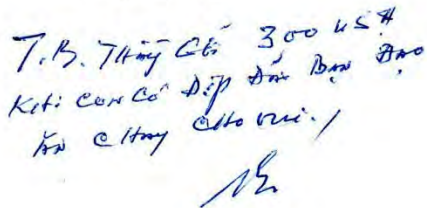 T.B. Thầy Gởi 300 US$
Khi con có Dịp Đãi Bạn Đạo
Ăn chay cho vui./